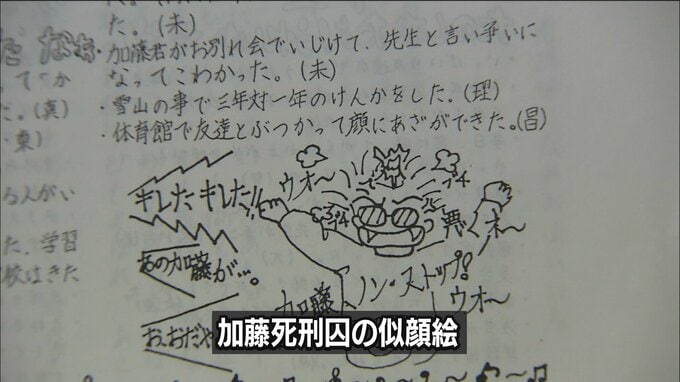 た。(未)
・加藤君がお別れ会でいじけて、先生と言い争いに
なってこわかった。(未)
・雪山の事で三年対一年のけんかをした。(理)
・体育館で友達とぶつかって顔にあざができた。(昌)
た なぁ
た。(真)
・東)
る人がい
た、学習
キレたキレた!!
ウオ〜
悪くネ〜
あの加藤が…。
ノン・ストップ!
加藤
ウオ〜
お、おだや
加藤死刑囚の似顔絵